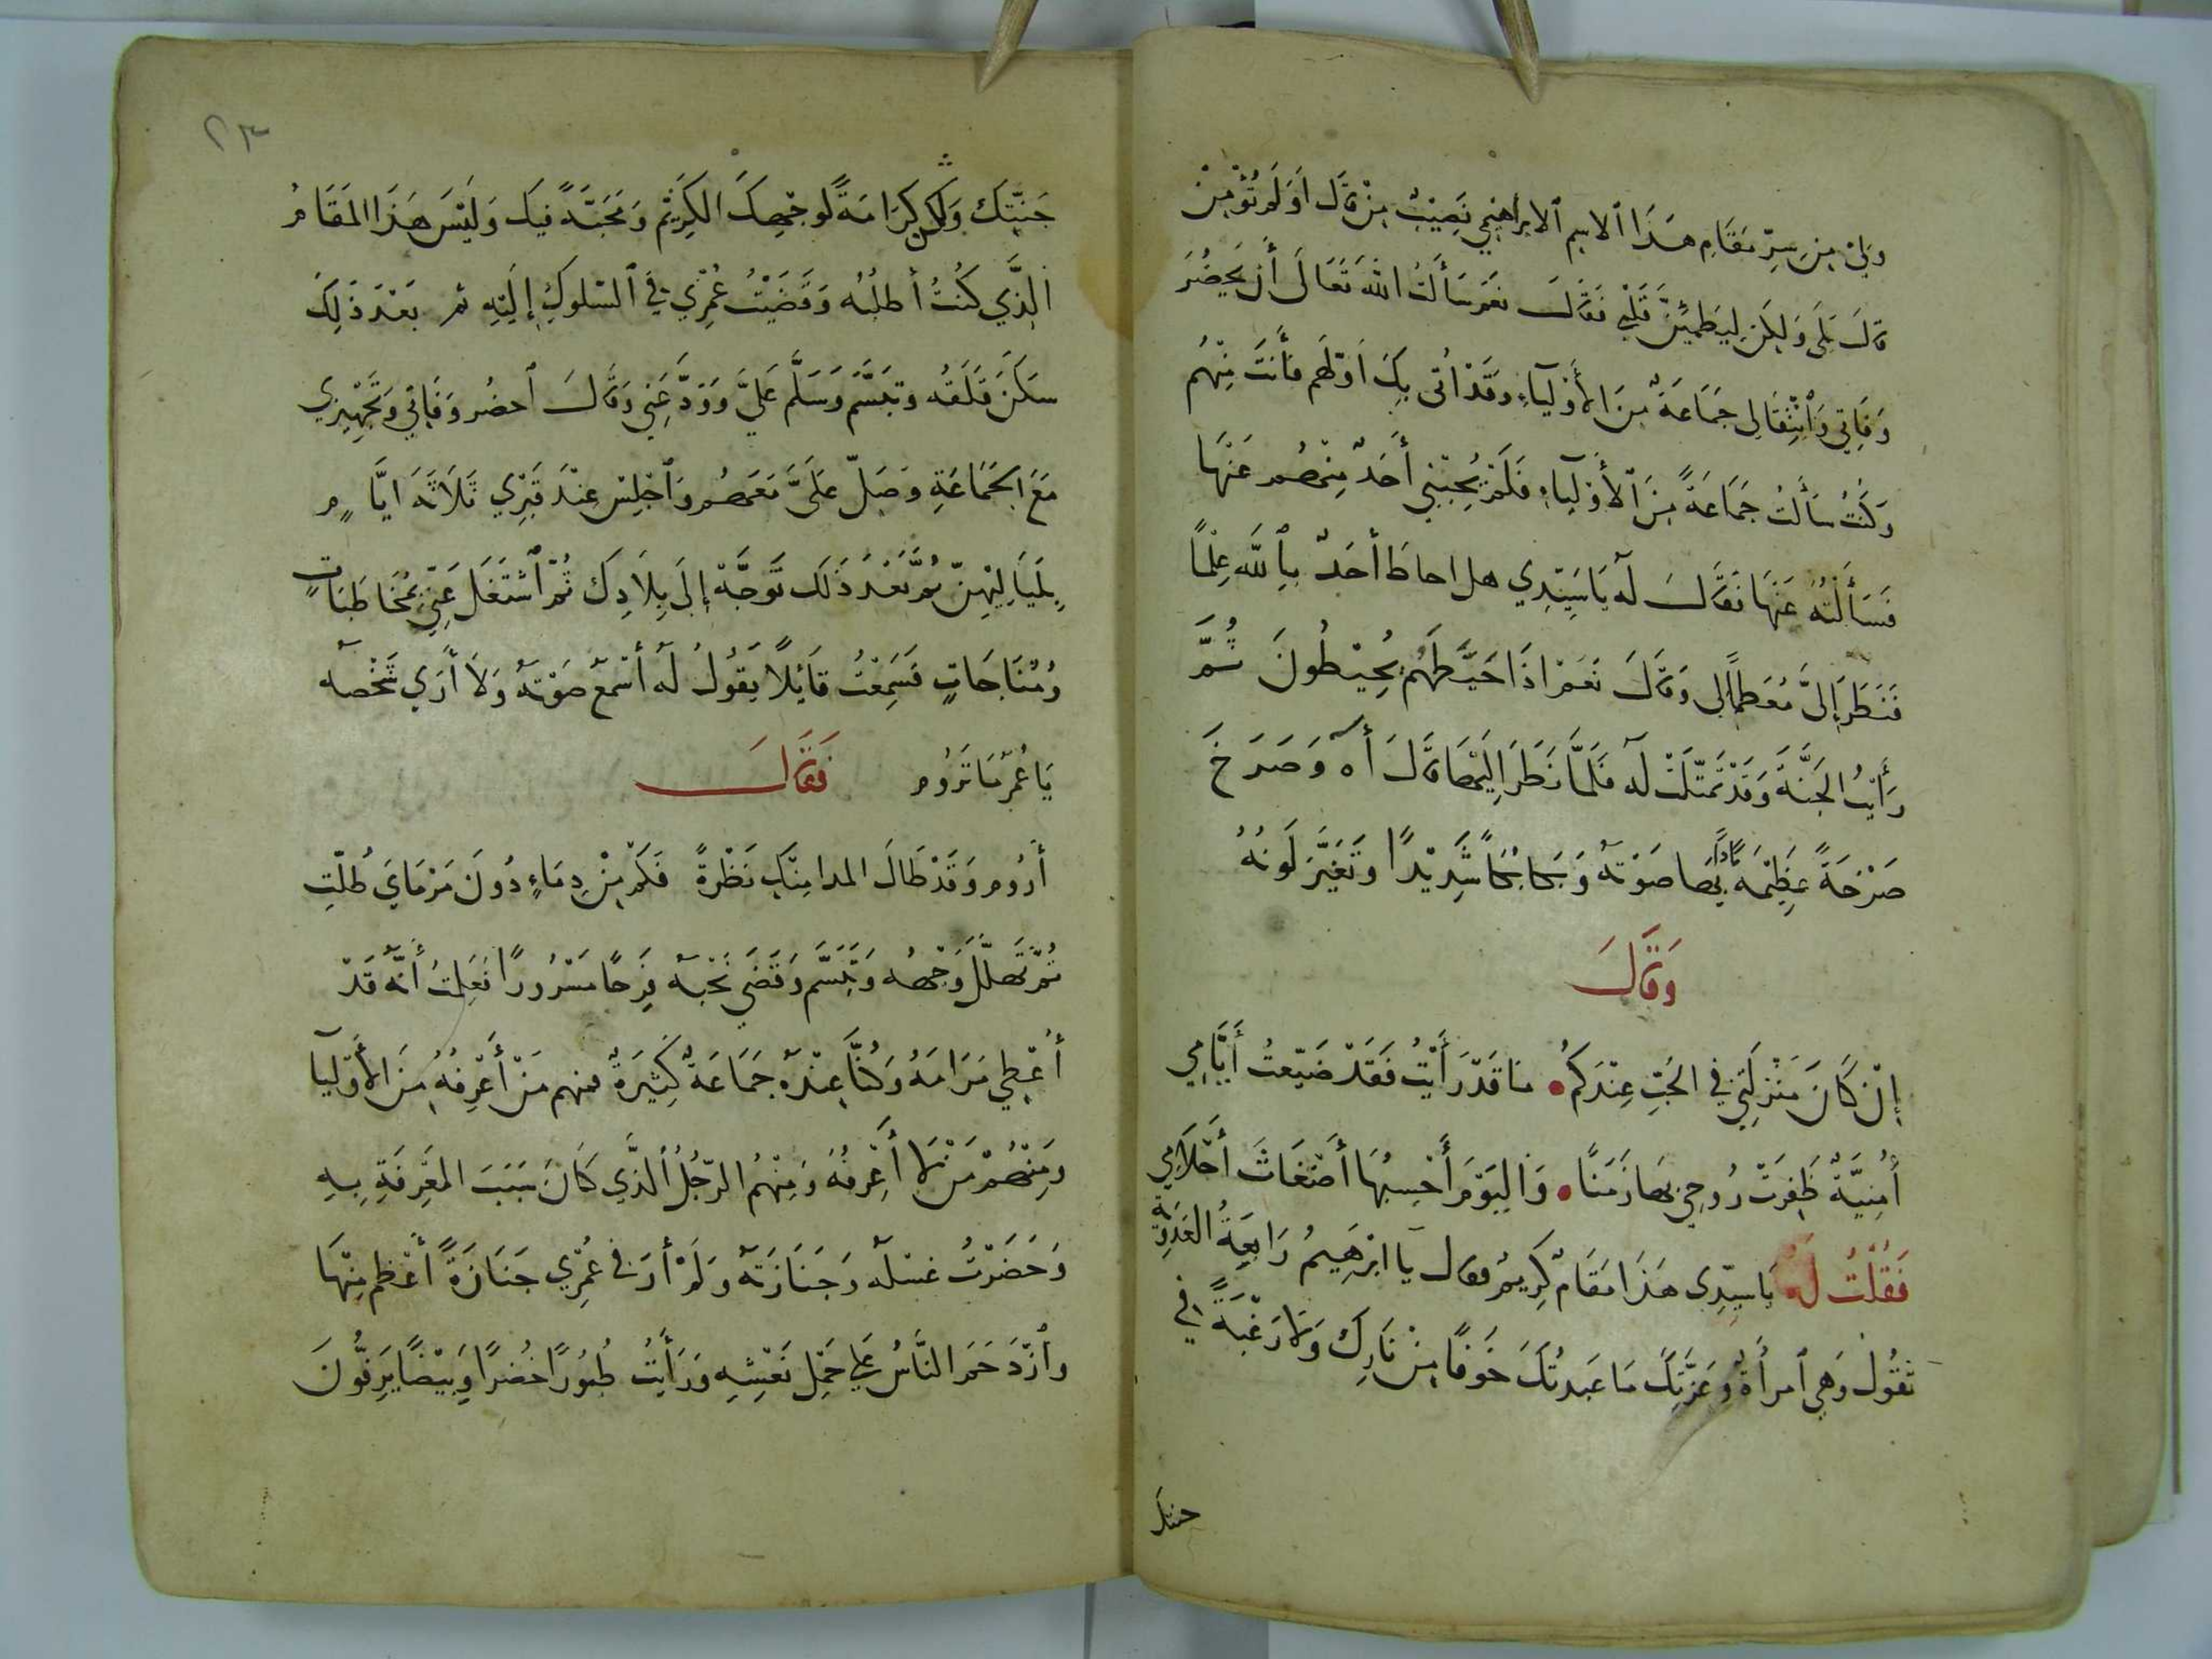 وَلِيْ مِنْ سِرِّ مَقَامِ هٰذَا ٱلاسِمِ ٱلابراهِيمِي نَصِيْبٌ مِنْ قَالَ اَوَلَمْ تُؤْمِنْ
قالَ بَلَى وَلٰكِنْ لِيَطْمَئِنَّ قَلْبِي فَقَالَ نعَم سَأَلتُ اللهَ تَعَالَى أَن يَحضُرَ
وَفَاتِي وَٱنتِقَالِى جَمَاعَةٌ مِنَ الأَوْلَيآءِ وَقَدْ اُتى بِكَ اَوّلهُم فأنتَ مِنْهُم
وَكنْتُ سَأَلتُ جَمَاعَةً مِنَ ٱلأَوْلَيآءِ فَلَمْ يُجِبْنِي أَحَدٌ مِنْهُم عَنْهَا
فَسَأَلْتُهُ عَنْهَا فقَالَ لَه يَا سَيّدِي هل احاطَ أحَدٌ بِٱللَّهِ عِلْمًا
فَنَظَرَ إِلَىَّ مُعَظِماً لِى وَقَالَ نَعَمْ اذَا حَيَّطَهُم يُحِيْطُونَ ثُمَّ
رَأَيْتُ الجَنَّةَ وَقَدْ تَمَثَّلَتْ لَه فَلَمَّا نَظَرَ إِلَيْهَا قالَ أه وَصَرَخَ
صَرْخَةً عَظِيْمَةً مَادًّا بِهَا صَوْتَه وَبَكا بُكَاً شَدِيْدًا وتَغَيَّرَ لَونُهُ
وَقَالَ
إِنْ كَانَ مَنْزِلَتِي فِي الحُبِّ عِنْدَكُم • مَا قَدْ رَأَيْتُ فَقَدْ ضَيّعتُ أَيَّامِي
أُمْنِيَّةٌ ظَفِرَتْ رُوحِي بِهَا زَمَنًا • وَاليَوْمَ أَحْسِبُهَا أَضْغَاثَ أَحْلَامِي
فَقُلْتُ لَه يَا سيّدِى هَذَا مَقَامٌ كَرِيمٌ فقال يآ ابْرَهِيمُ رَابِعَةُ العَدَوِيّة
تَقُولُ وَهِي ٱمرأةٌ وَعِزَّتِكَ مَا عَبدتُكَ خَوفًا مِنْ نَارِكَ وَلَا رَغْبَةً فِي
جنتك
٢٣
جَنَّتِكَ وَلٰكِنْ كَرَامَةً لوجهِكَ الكَرِيْمِ وَمَحَبَّةً فيكَ وَلَيْسَ هَذَا المَقَامُ
الَّذِي كُنْتُ أطلُبُه وَقَضَيْتُ عُمْرِي فِي ٱلسّلوكِ إِلَيْهِ ثم بَعْدَ ذَلِكَ
سَكَنَ قَلَقُه وتبَسَّمَ وَسَلَّم عَلَيَّ وَوَدَّعَنِي وَقَالَ ٱحضُر وَفَاتِي وَتَجْهِيزِي
مَعَ الجَمَاعَةِ وَصَلّ عَلَىَّ مَعَهُم وَٱجْلِسْ عِنْدَ قَبْرِي ثَلَاثَةَ ايَّامٍ
بِلَيَالِيْهِنّ ثُمَّ بَعْدَ ذَلكَ تَوَجَّهْ إلَى بِلَادِكَ ثُمّ ٱشْتَغَلَ عَنِّي بِمُخَاطَبَاتٍ
وَمُنَاجَاتٍ فَسَمِعْتُ قَآئِلًا يَقُولُ لَه أسْمَع صَوْتَه وَلَا أرَي شَخْصَه
يَا عُمَرُ مَا تَرُوم فَقَالَ
أَرُوم وَقَدْ طَالَ المدا مِنْكِ نَظْرَةً فَكَمْ مِنْ دِمَاءٍ دُونَ مَرْمَايَ طُلّتِ
ثُمَّ تَهلّلَ وَجْهُه وَتَبَسَّمَ وَقَضَي نَحْبَه فَرِحًا مَسْرُورًا فعَلِمْتُ أَنَّه قَدْ
أُعْطِي مَرَامَهُ وَكُنَّا عِنْدَه جَمَاعَةٌ كَثِيرَةٌ فمنهم مَنْ أَعْرِفُهُ مِنَ الأَوْليآ
وَمِنْهُمْ مَنْ لَا أَعْرِفُهُ وَمِنْهُمُ الرّجُلُ ٱلَّذِي كَانَ سَبَبَ المَعْرِفَةِ بِهِ
وَحَضَرْتُ غسْلَه وَجَنَازَتَه وَلَمْ أرَ فِي عُمْرِي جَنَازَةً أَعْظَم مِنْهَا
وٱزْدَحَمَ النَّاسُ عَلَى حَمْلِ نَعْشِهِ وَرَأَيْتُ طُيُورًا خُضرًا وَبِيْضًا يَرِفُّونَ